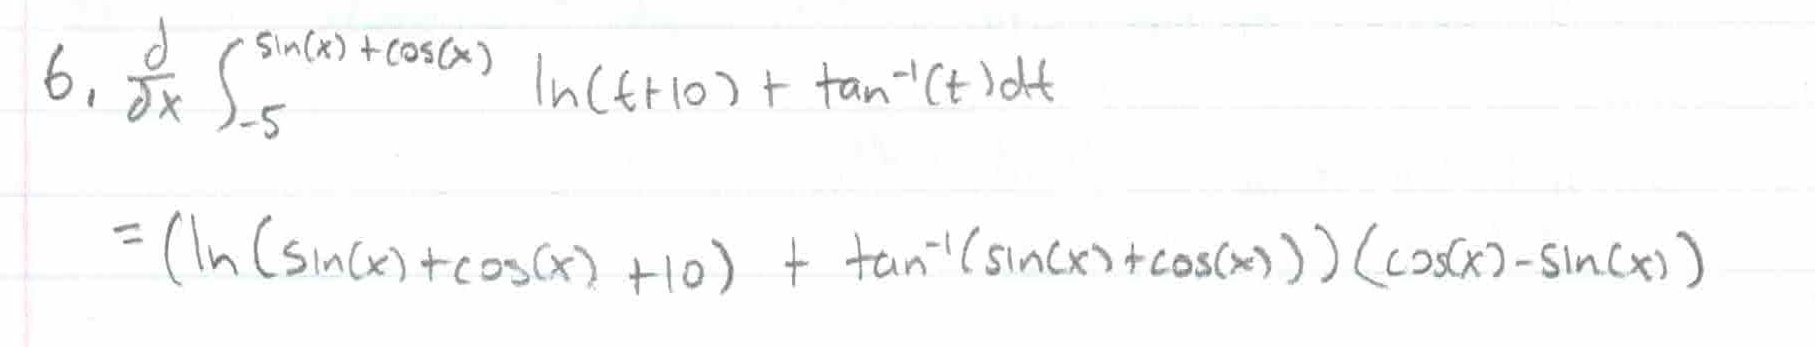 6. d/dx ∫_{-5}^{sin(x)+cos(x)} ln(t+10) + tan⁻¹(t)dt
= (ln(sin(x)+cos(x)+10) + tan⁻¹(sin(x)+cos(x)))(cos(x)-sin(x))